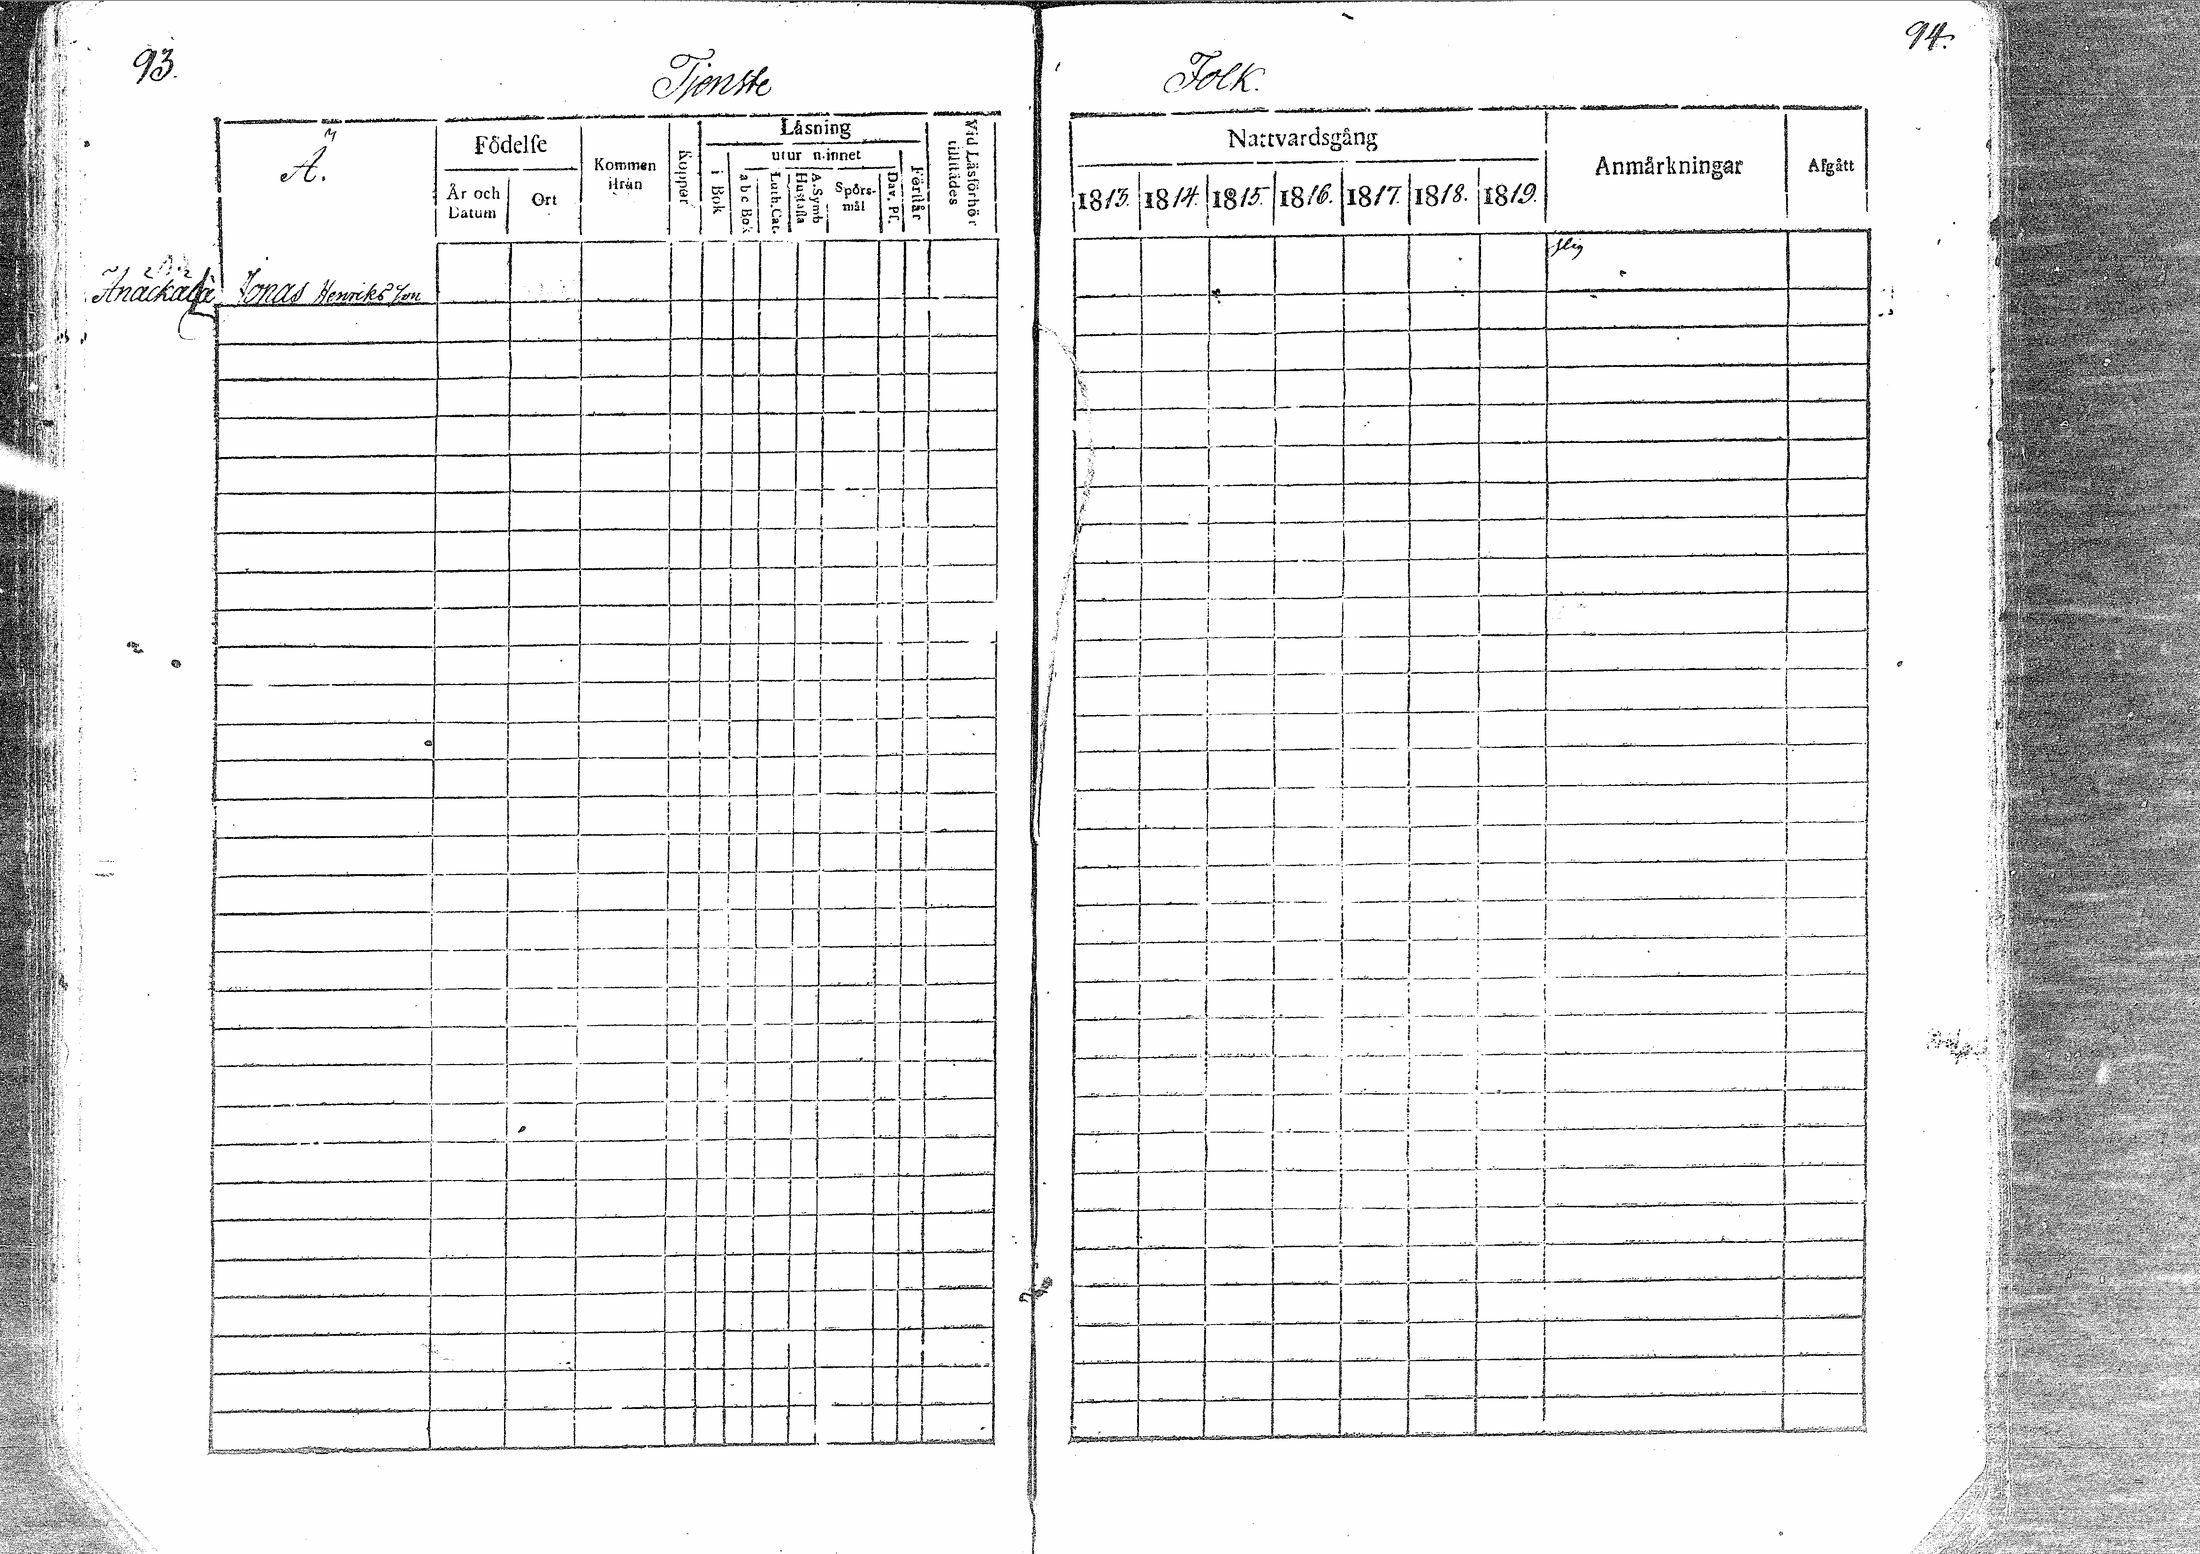 93.
Tjenste
Folk.
94.
Å.
Födelse
År och Datum
Ort
Kommen ifrån
Koppor
Läsning
i Bok
utur minnet
a b c Bok
Luth. Cat.
Hustafla
A. Symb
Spörsmål
Dav. Ps.
Förstår
Vid Läsförhör tillstädes
Nattvardsgång
1813. 1814. 1815. 1816. 1817. 1818. 1819.
Anmärkningar
Afgått
Jonas Henriks Son